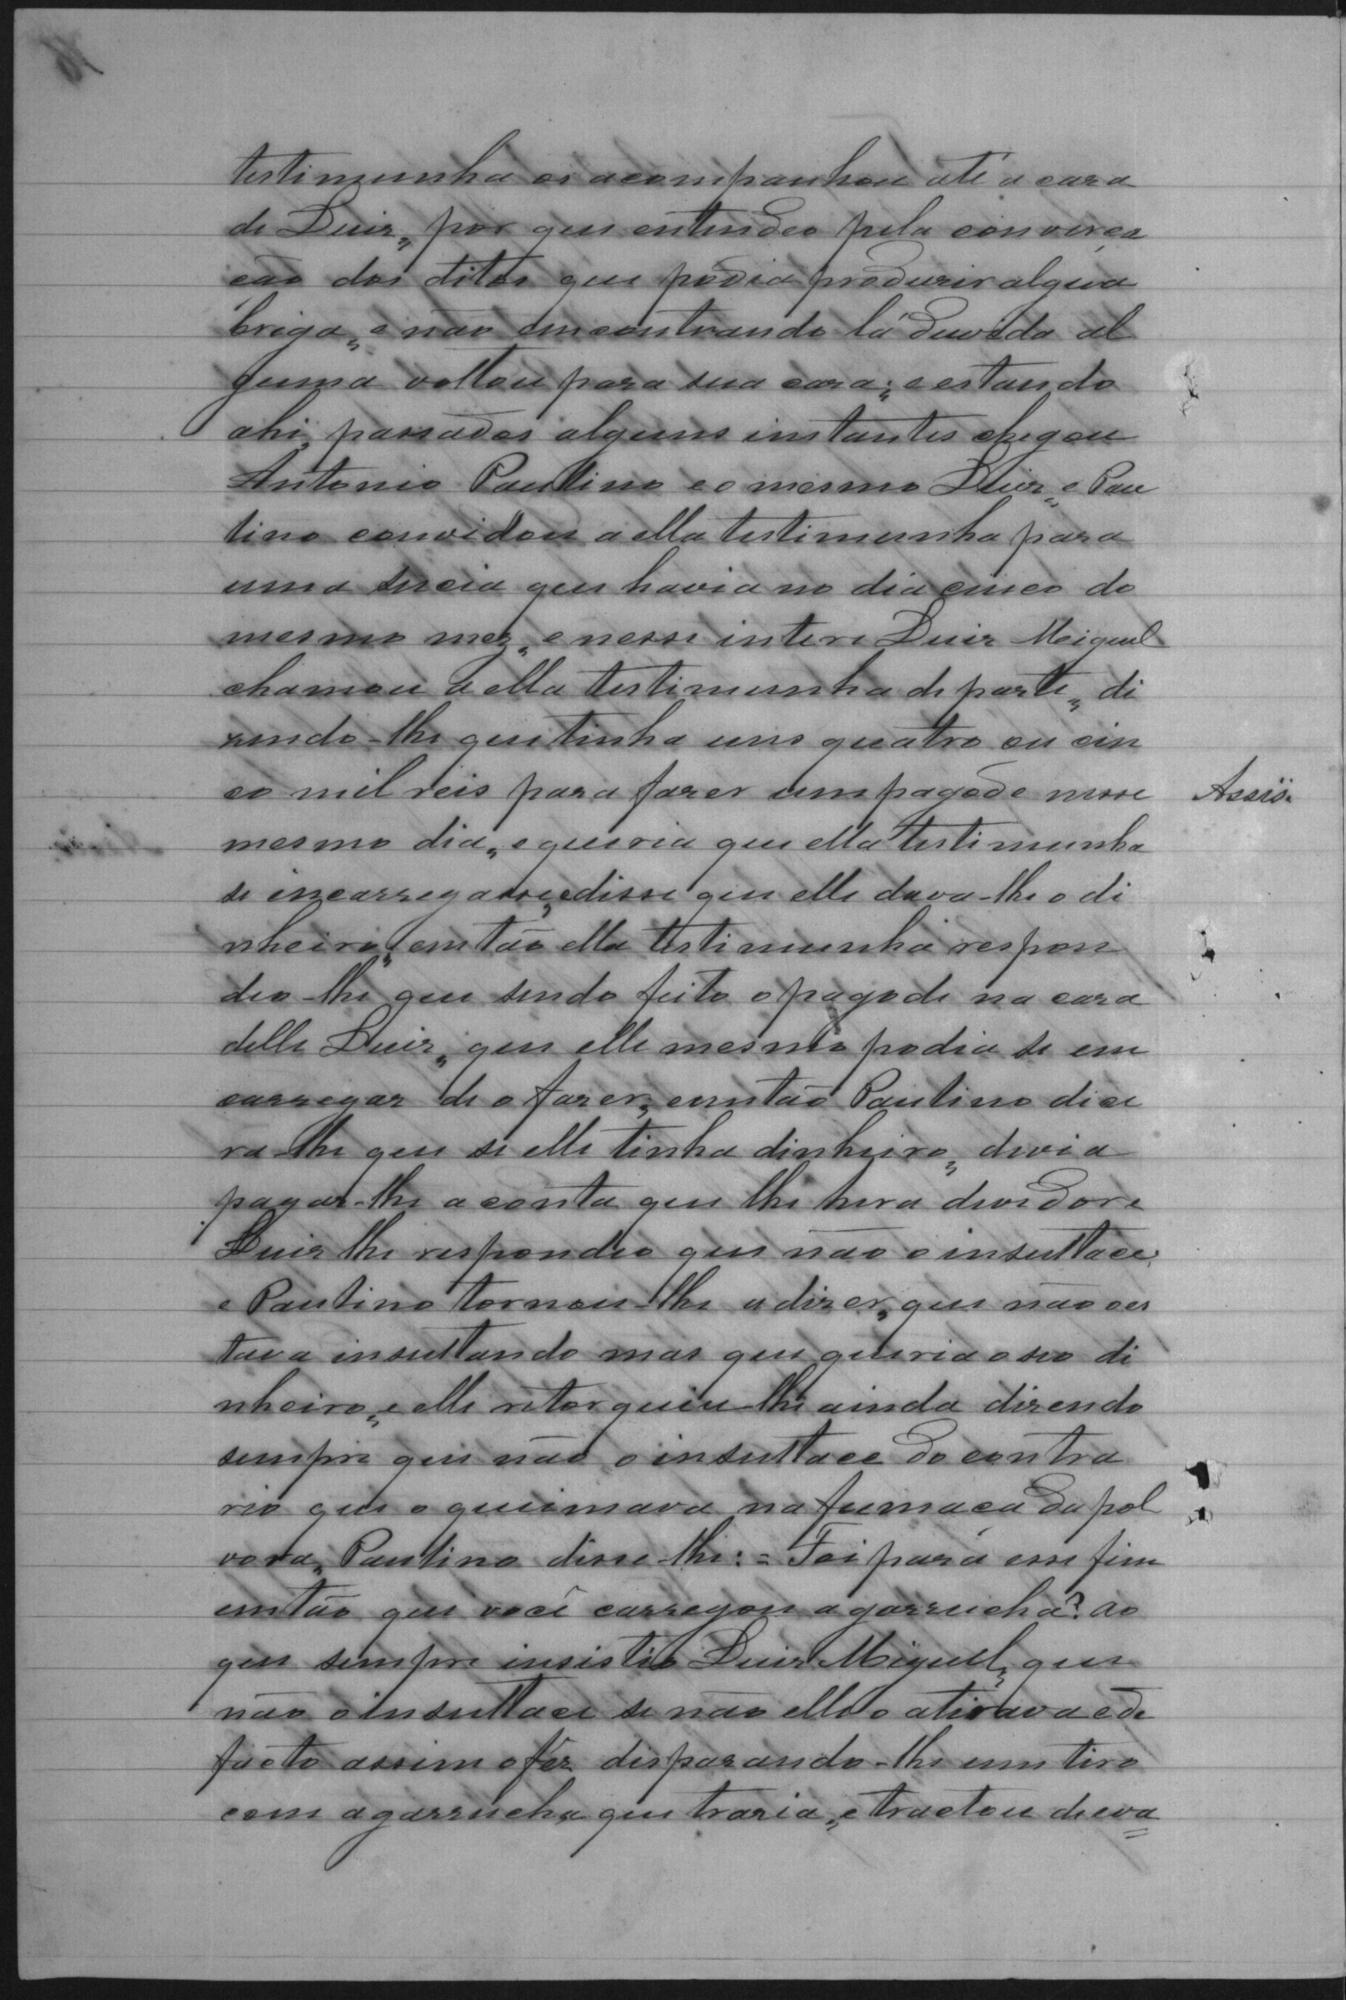 testimunha os acompanhou até a caza
de Luiz, por que entendeo pela converça
ção dos ditos que podia produzir algũa
briga, e não emcontrando lá duvida al
guma voltou para sua caza; e estando
ahi, passados alguns instantes chegou
Antonio Paulino e o mesmo Luiz, e Pau
lino convidou a ella testimunha para
uma sucia que havia no dia cinco do
mesmo mez, e nesse intere Luiz Miguel
chamou a ella testimunha de parte, di
zendo-lhe que tinha uns quatro ou cin
co mil reis para fazer um pagode nesse
Assis.
mesmo dia, e queria que ella testimunha
se incarregasse, e disse que elle dava-lhe o di
nheiro, emtão ella testimunha respon
deo-lhe que sendo feito o pagode na caza
delle Luiz, que elle mesmo podia se em
carregar de o fazer, emtão Paulino dice
ra-lhe que se elle tinha dinheiro, devia
pagar-lhe a conta que lhe hera devedor e
Luiz lhe respondeo que não o insultace
e Paulino tornou-lhe a dizer, que não o es
tava insultando mas que queria o seo di
nheiro, e elle retorquiu-lhe ainda dizendo
sempre que não o insultace do contra
rio que o queimava na fumaça da pol
vora, Paulino disse-lhe: = Foi para esse fim
emtão que você carregou a garrucha? ao
que sempre insistio Luiz Miguel, que
não o insultace se não elle o atirava e de
facto assim o fêz disparando-lhe um tiro
com a garrucha que trazia, e tractou de eva